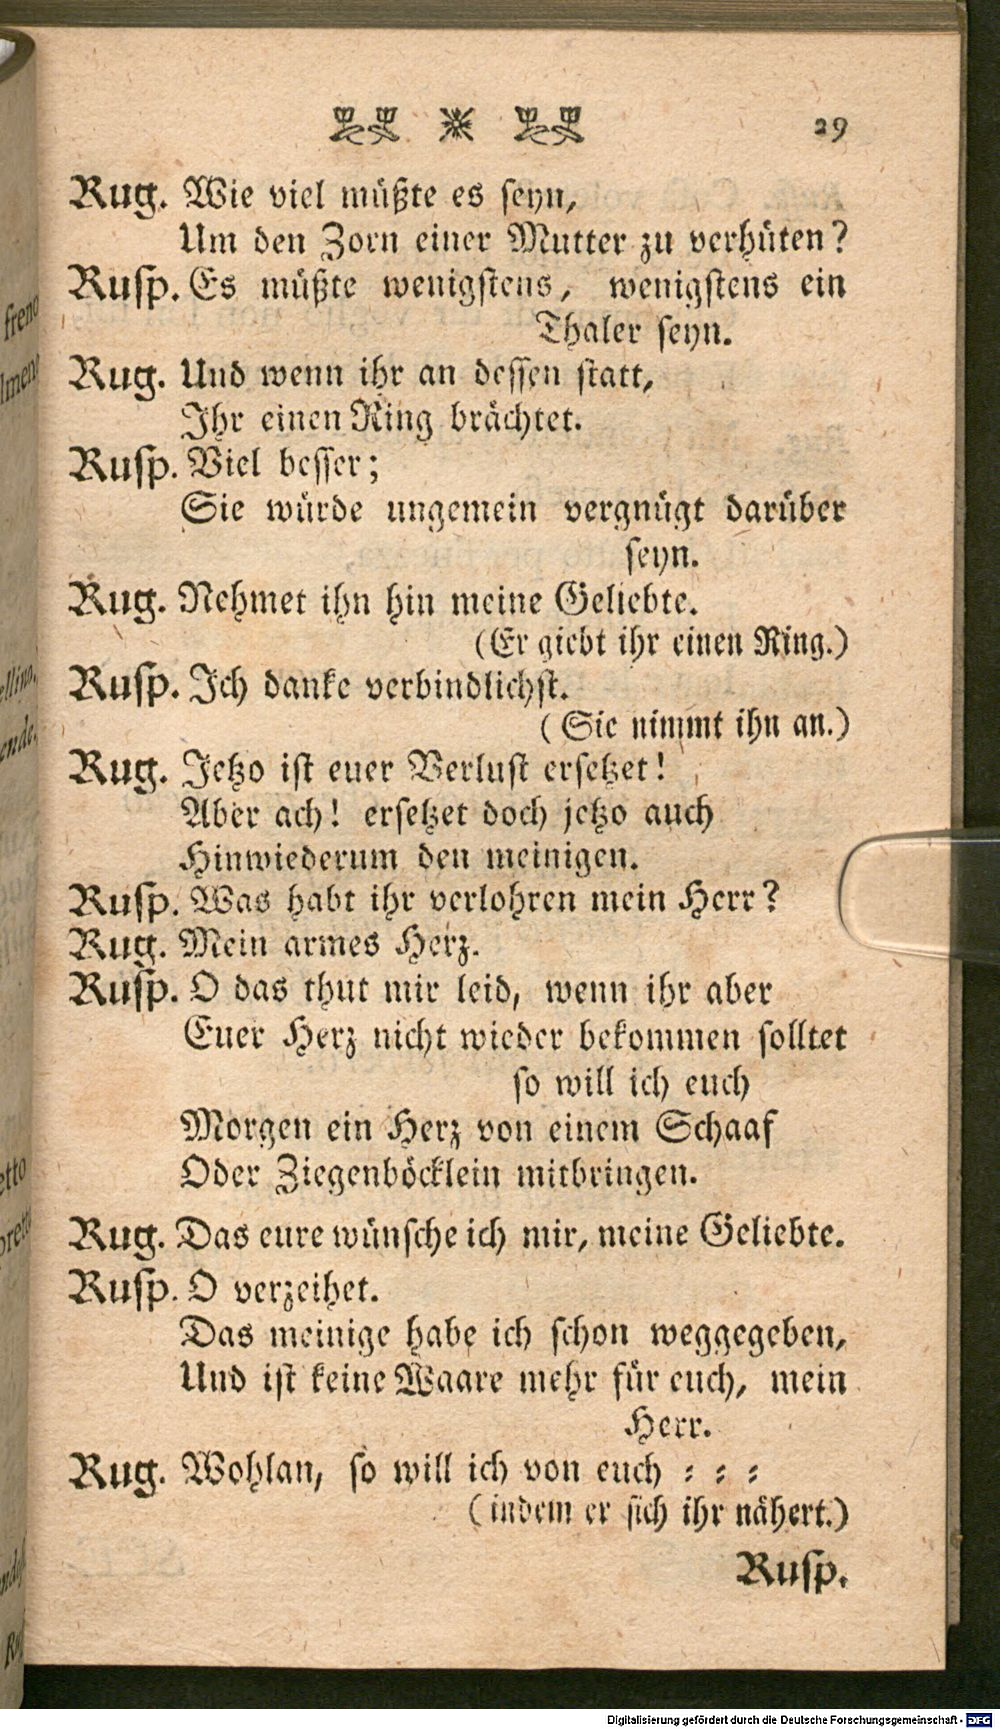 29
Rug. Wie viel müßte es seyn,
Um den Zorn einer Mutter zu verhüten?
Rusp. Es müßte wenigstens, wenigstens ein
Thaler seyn.
Rug. Und wenn ihr an dessen statt,
Ihr einen Ring brächtet.
Rusp. Viel besser;
Sie würde ungemein vergnügt darüber
seyn.
Rug. Nehmet ihn hin meine Geliebte.
(Er giebt ihr einen Ring.)
Rusp. Ich danke verbindlichst.
(Sie nimmt ihn an.)
Rug. Jetzo ist euer Verlust ersetzet!
Aber ach! ersetzet doch jetzo auch
Hinwiederum den meinigen.
Rusp. Was habt ihr verlohren mein Herr?
Rug. Mein armes Herz.
Rusp. O das thut mir leid, wenn ihr aber
Euer Herz nicht wieder bekommen solltet
so will ich euch
Morgen ein Herz von einem Schaaf
Oder Ziegenböcklein mitbringen.
Rug. Das eure wünsche ich mir, meine Geliebte.
Rusp. O verzeihet.
Das meinige habe ich schon weggegeben,
Und ist keine Waare mehr für euch, mein
Herr.
Rug. Wohlan, so will ich von euch = = =
(indem er sich ihr nähert.)
Rusp.
freno
ellino,
ende.
etto
Digitalisierung gefördert durch die Deutsche Forschungsgemeinschaft - DFG